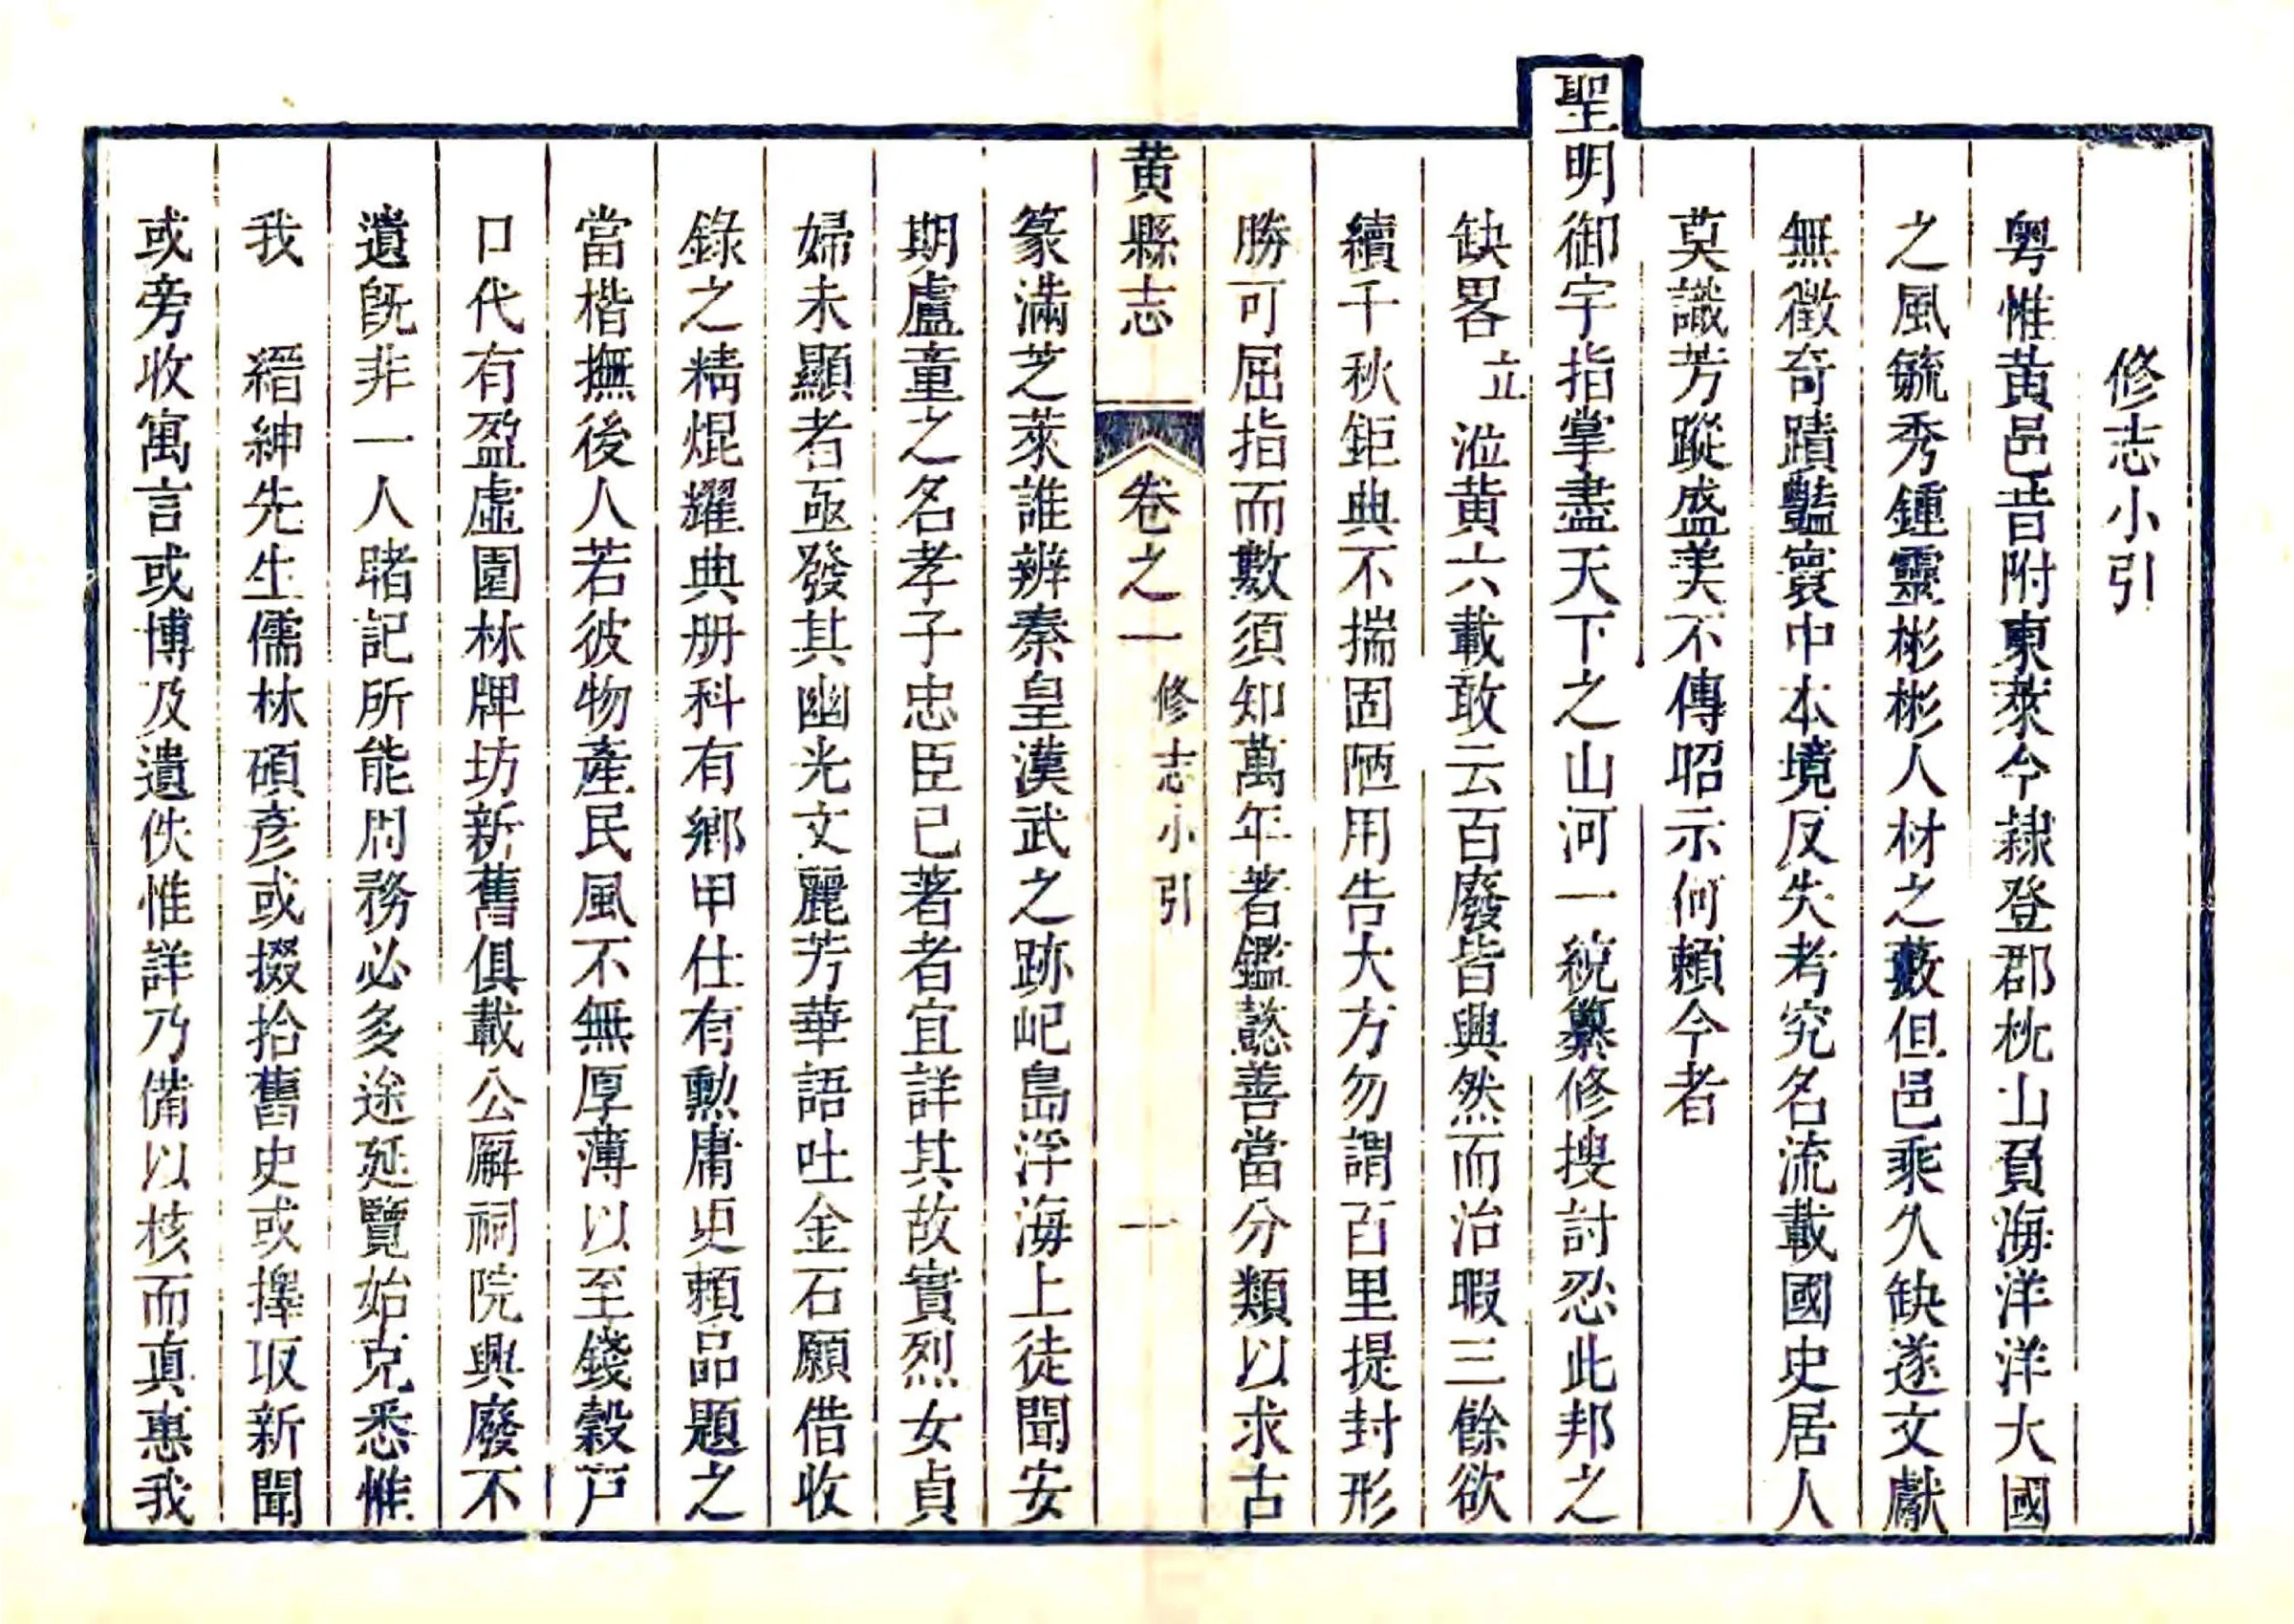 修志小引
粤惟黃邑昔附東萊今隷登郡枕山負海洋洋大國
之風毓秀鍾靈彬彬人材之藪但邑乘久缺遂文獻
無徵奇蹟豔寰中本境反失考究名流載國史居人
莫識芳蹤盛美不傳昭示何賴今者
聖明御宇指掌盡天下之山河一統纂修搜討忍此邦之
缺畧立涖黃六載敢云百廢皆興然而治暇三餘欲
續千秋鉅典不揣固陋用告大方勿謂百里提封形
勝可屈指而數須知萬年著鑑懿善當分類以求古
黃縣志 卷之一 修志小引 一
篆滿芝萊誰辨秦皇漢武之跡屺島浮海上徒聞安
期盧童之名孝子忠臣已著者宜詳其故實烈女貞
婦未顯者亟發其幽光文麗芳華語吐金石願借收
錄之精焜耀典册科有鄉甲仕有勲庸更賴品題之
當楷撫後人若彼物產民風不無厚薄以至錢穀戸
口代有盈虛園林牌坊新舊俱載公廨祠院興廢不
遺旣非一人睹記所能周務必多途延覽始克悉惟
我 縉紳先生儒林碩彥或掇拾舊史或擇取新聞
或旁收寓言或博及遺佚惟詳乃備以核而真惠我